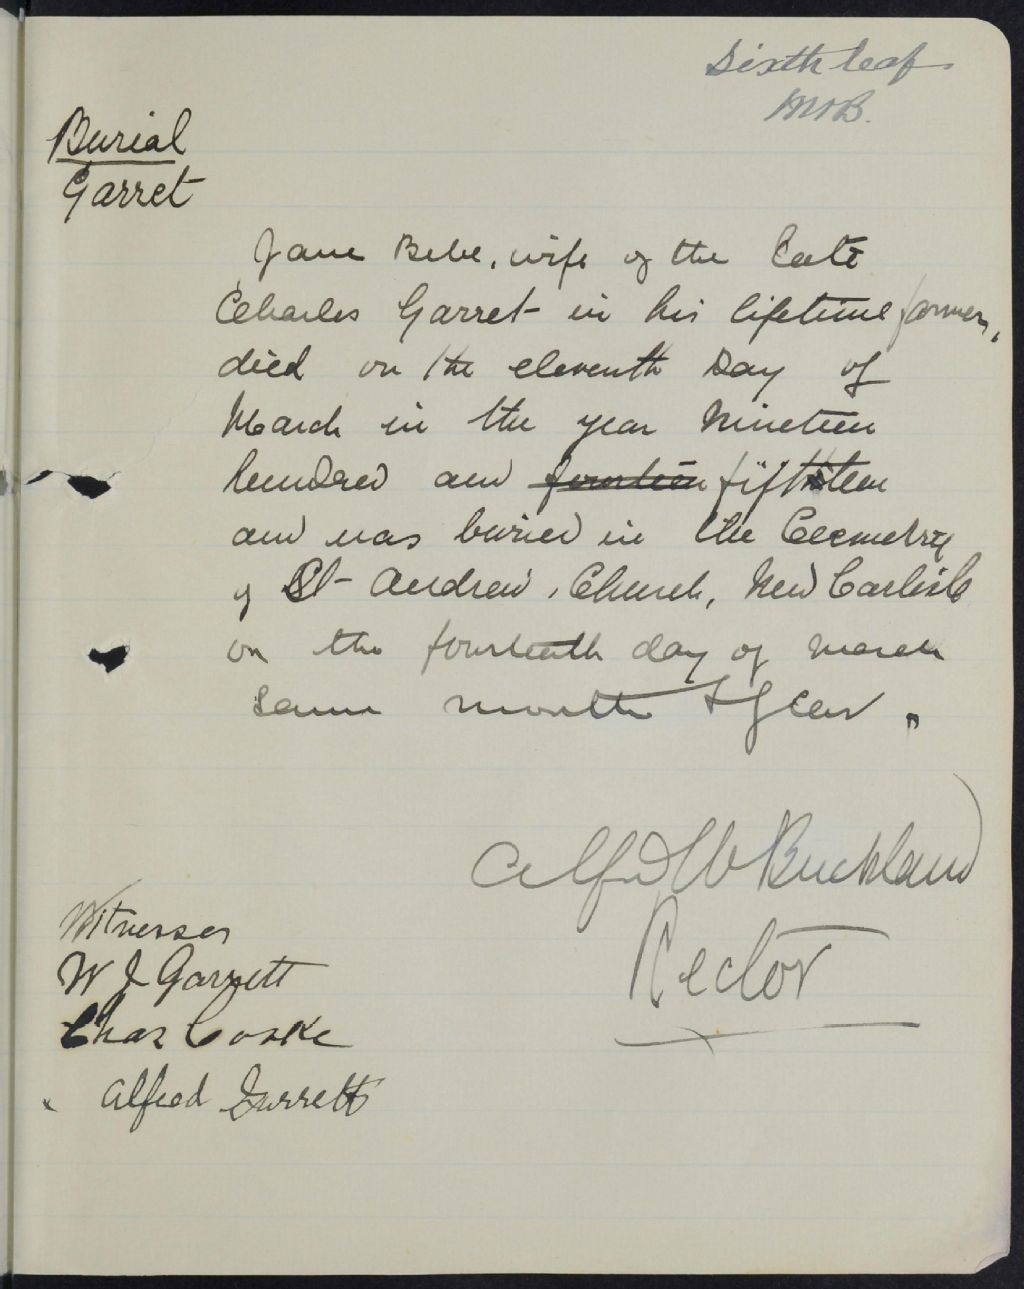 Sixth leaf
Burial
Garret
Jane Bebe, wife of the late
Charles Garret in his lifetime farmer,
died on the eleventh Day of
March in the year Nineteen
hundred and fourteen fifteen
and was buried in the Cemetry
of St Andrew's Church, New Carlisle
on the fourteenth day of march
same month & year.
Alfred W Buckland
Rector
Witnesses
W J Garrett
Chas Cooke
Alfred Garrett